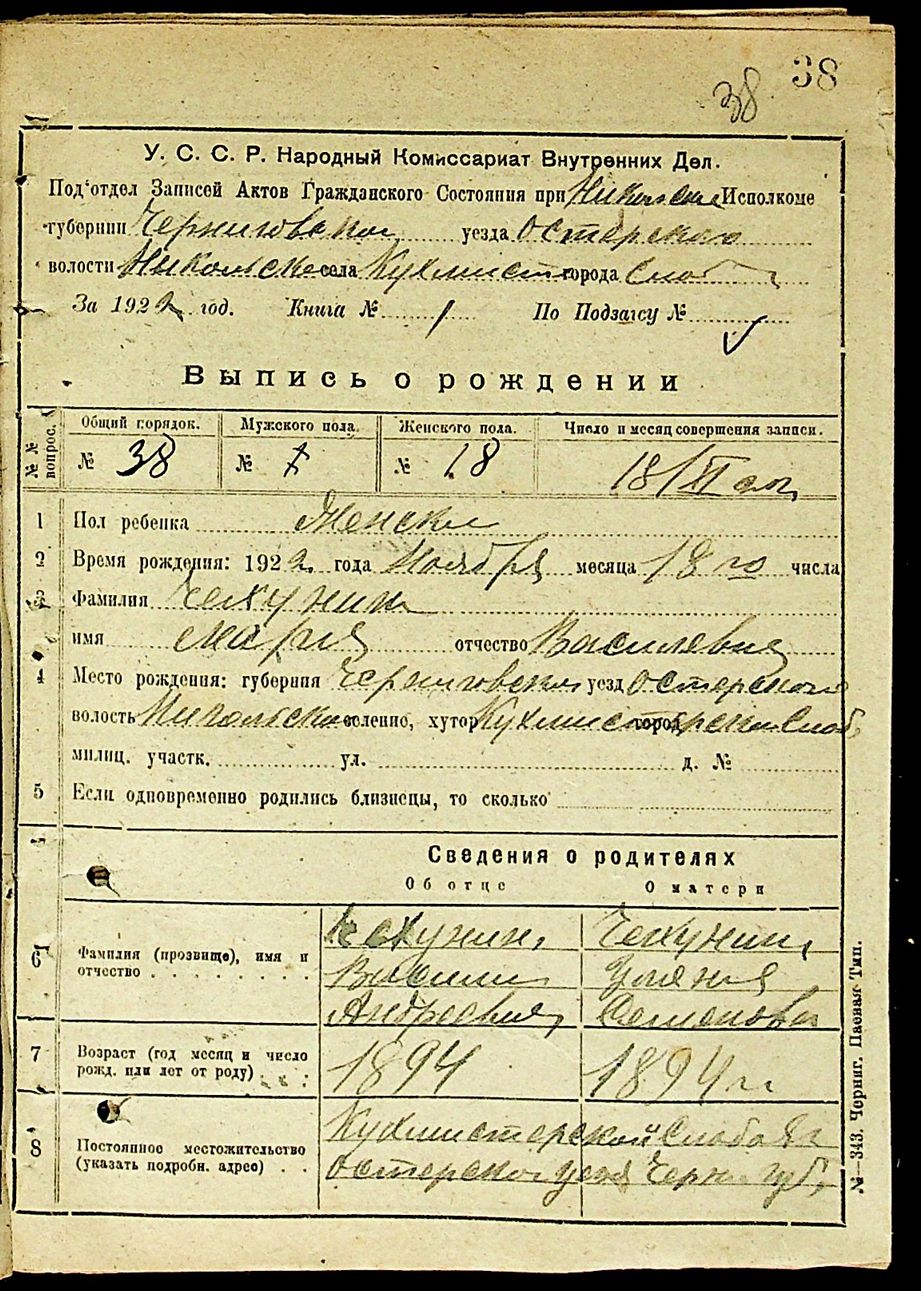 38
38
У. С. С. Р. Народный Комиссариат Внутренних Дел.
Под'отдел Записей Актов Гражданского Состояния при Никольск Исполкоме
губернии Черниговской уезда Остерского
волости Никольске села Кухмист города Слоб
За 1922 год. Книга № 1 По Подзагсу №
Выпись о рождении
№ № вопрос.
Общий порядок. Мужского пола. Женского пола. Число и месяц совершения записи.
№ 38 № № 18 18/XI
1 Пол ребенка Женски
2 Время рождения: 1922 года Ноября месяца 18 го числа
3 Фамилия Чехунин
имя Мария отчество Василевна
4 Место рождения: губерния Черниговской уезд Остерского
волость Никольско селение, хутор Кухмистерской город Слоб
милиц. участк. ул. д. №
5 Если одновременно родились близнецы, то сколько
Сведения о родителях
Об отце О матери
6 Фамилия (прозвище), имя и отчество
Чехунин Чехунин
Васили Уляния
Андреевич Семенова
7 Возраст (год месяц и число рожд. или лет от роду)
1894 1894 г
8 Постоянное местожительство (указать подробн. адрес)
Кухмистерской Слобода
Остерско уезд Черниг губ,
№—343. Черниг. Паевая Тип.